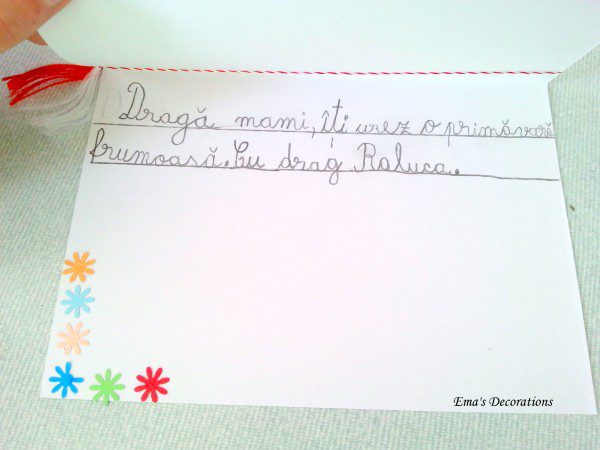 Dragă mami, îți urez o primăvară
frumoasă. Cu drag Raluca.
Ema's Decorations